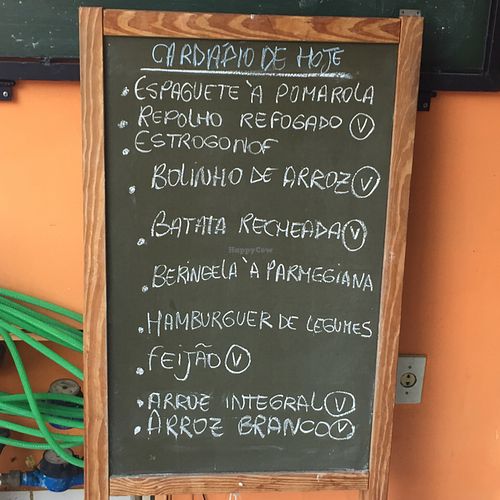 CARDAPIO DE HOJE
• ESPAGUETE À POMAROLA
• REPOLHO REFOGADO Ⓥ
• ESTROGONOF
• BOLINHO DE ARROZ Ⓥ
• BATATA RECHEADA Ⓥ
HappyCow
• BERINGELA À PARMEGIANA
• HAMBURGUER DE LEGUMES
• FEIJÃO Ⓥ
• ARROZ INTEGRAL Ⓥ
• ARROZ BRANCO Ⓥ